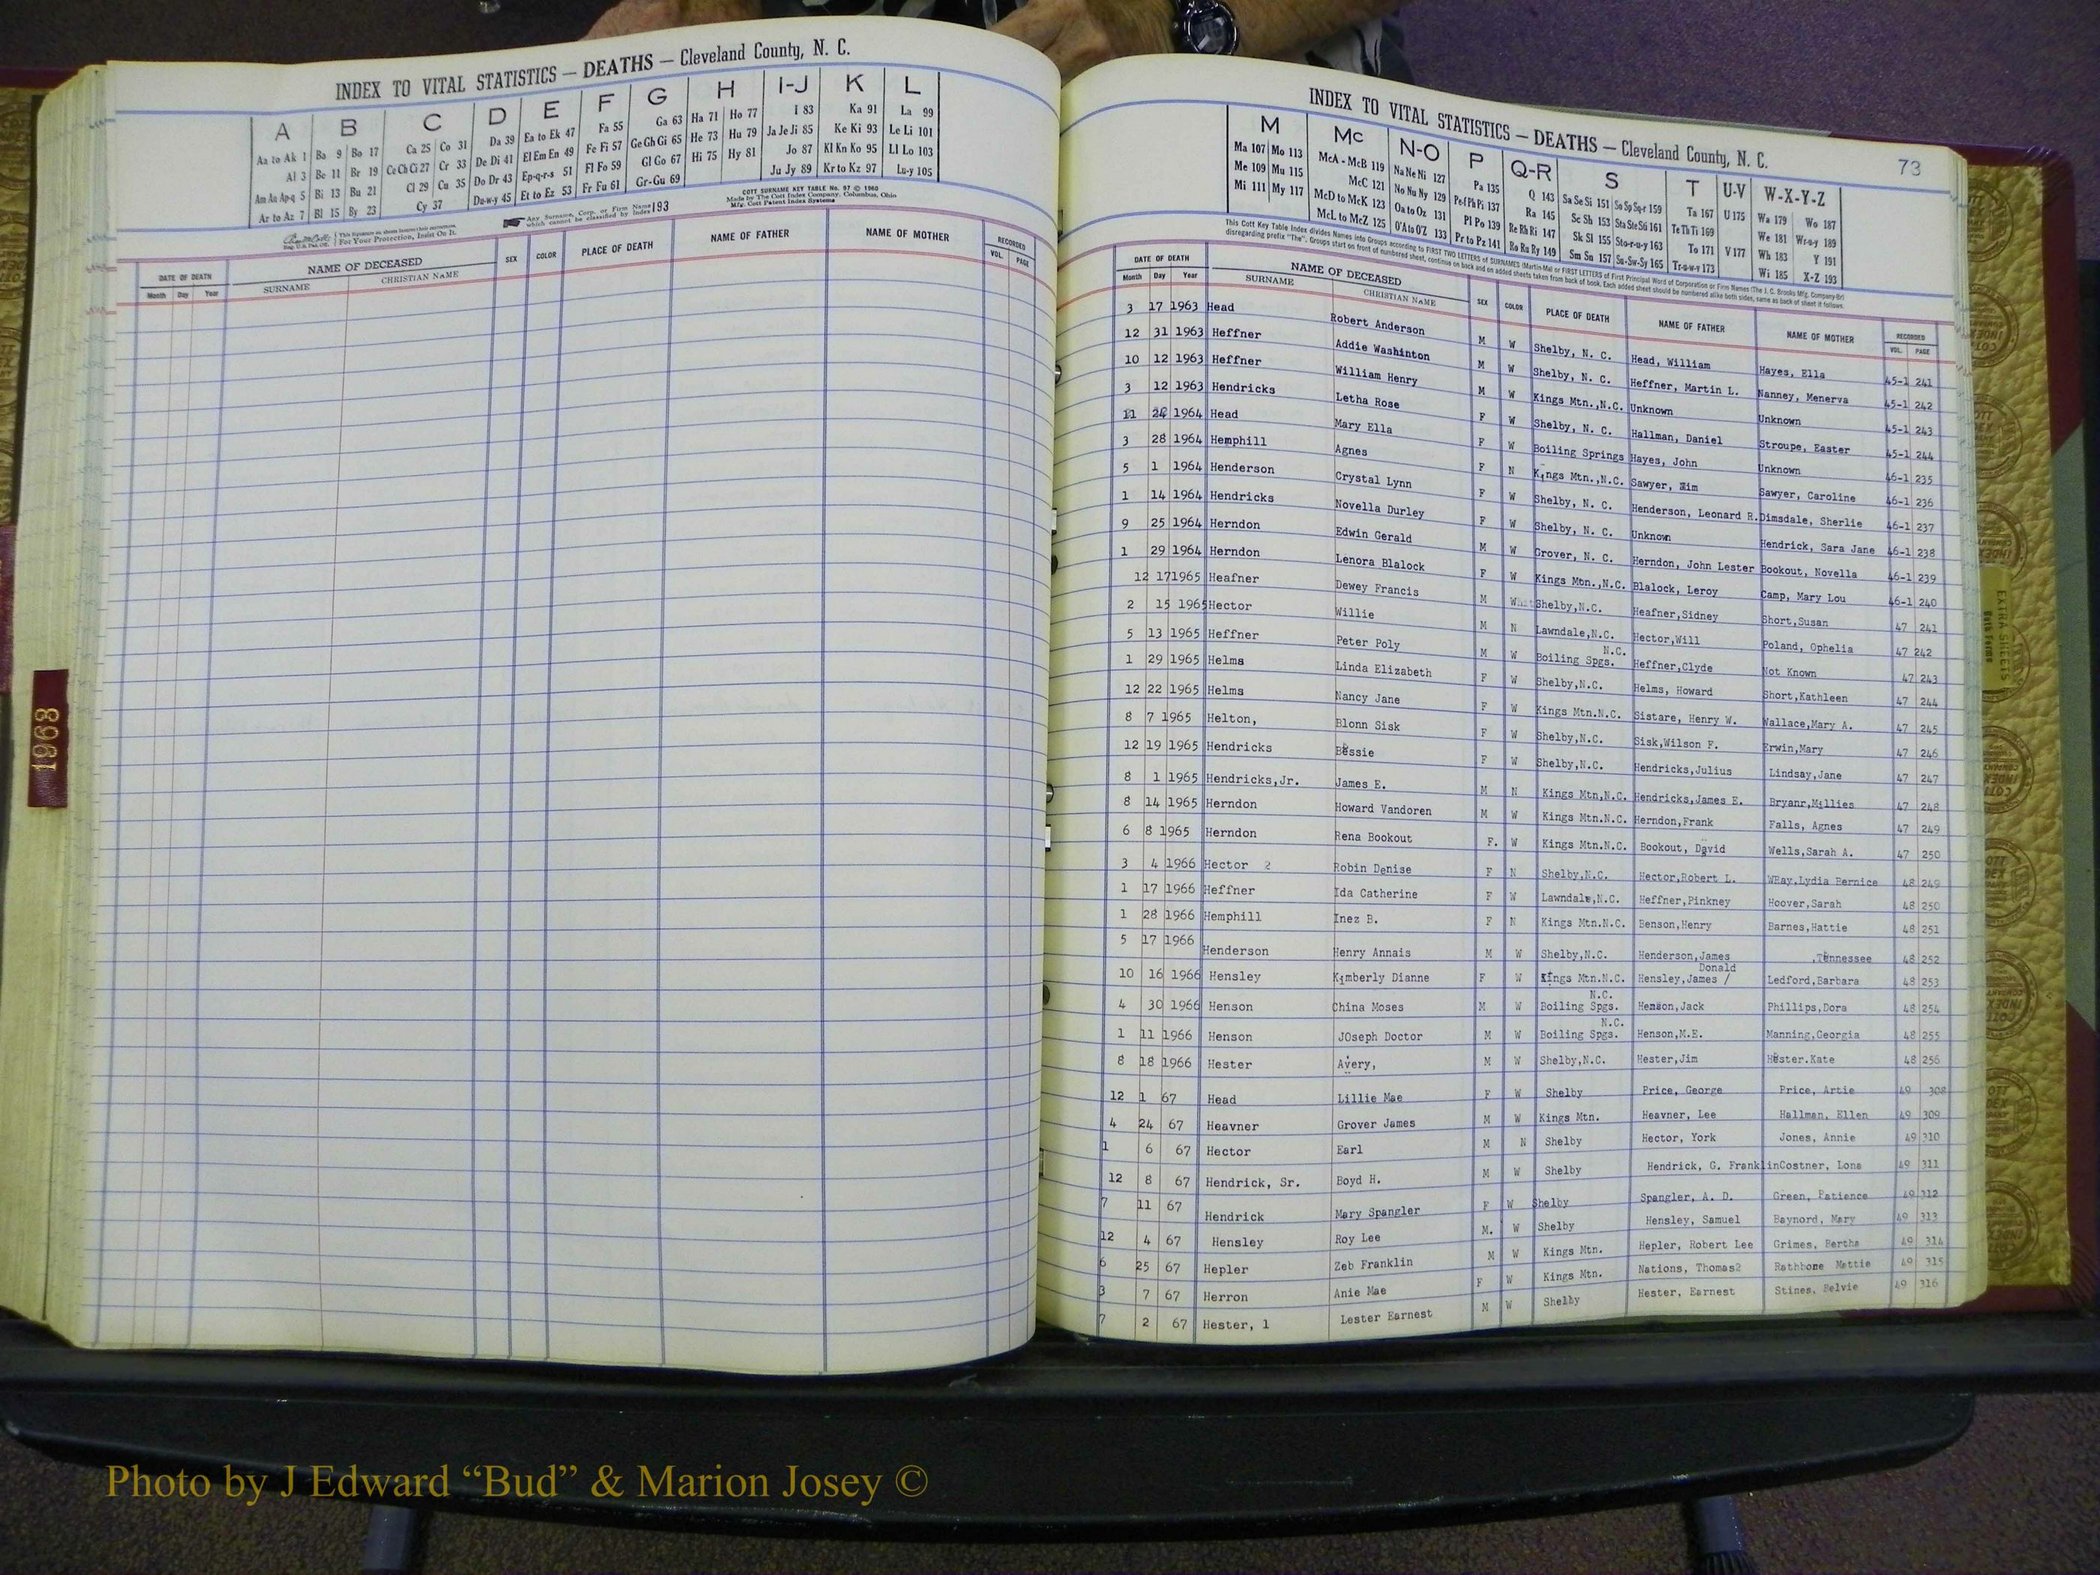 INDEX TO VITAL STATISTICS — DEATHS — Cleveland County, N. C.
A B C D E F G H I-J K L
Aa to Ak 1 Ba 9 Bo 17 Ca 25 Co 31 Da 39 Ea to Ek 47 Fa 55 Ga 63 Ha 71 Ho 77 I 83 Ka 91 La 99
Al 3 Be 11 Br 19 Ce Ch Ci 27 Cr 33 De Di 41 El Em En 49 Fe Fi 57 Ge Gh Gi 65 He 73 Hu 79 Ja Je Ji 85 Ke Ki 93 Le Li 101
Am An Ap-q 5 Bi 13 Bu 21 Cl 29 Cu 35 Do Dr 43 Ep-q-r-s 51 Fl Fo 59 Gl Go 67 Hi 75 Hy 81 Jo 87 Kl Kn Ko 95 Ll Lo 103
Ar to Az 7 Bl 15 By 23 Cy 37 Du-w-y 45 Et to Ez 53 Fr Fu 61 Gr-Gu 69 Ju Jy 89 Kr to Kz 97 Lu-y 105
COTT SURNAME KEY TABLE No. 97 © 1960
Made by The Cott Index Company, Columbus, Ohio
Mfg. Cott Patent Index Systems
This Signature on sheets insures their correctness.
For Your Protection, Insist On It.
Any Surname, Corp. or Firm Name which cannot be classified by Index 193
DATE OF DEATH NAME OF DECEASED SEX COLOR PLACE OF DEATH NAME OF FATHER NAME OF MOTHER RECORDED
Month Day Year SURNAME CHRISTIAN NAME VOL. PAGE
1968
INDEX TO VITAL STATISTICS — DEATHS — Cleveland County, N. C.
73
M Mc N-O P Q-R S T U-V W-X-Y-Z
Ma 107 Mo 113 McA - McB 119 Na Ne Ni 127 Pa 135 Q 143 Sa Se Si 151 So Sp Sq-r 159 Ta 167 U 175 Wa 179 Wo 187
Me 109 Mu 115 McC 121 No Nu Ny 129 Pe-f Ph Pi 137 Ra 145 Sc Sh 153 Sta Ste Sti 161 Te Th Ti 169 We 181 Wr-u-y 189
Mi 111 My 117 McD to McK 123 Oa to Oz 131 Pl Po 139 Re Rh Ri 147 Sk Sl 155 Sto-r-u-y 163 To 171 V 177 Wh 183 Y 191
McL to McZ 125 O'A to O'Z 133 Pr to Pz 141 Ro Ru Ry 149 Sm Sn 157 Su-Sw-Sy 165 Tr-u-w-y 173 Wi 185 X-Z 193
This Cott Key Table Index divides Names into Groups according to FIRST TWO LETTERS of SURNAMES (Martin-Ma) or FIRST LETTERS of First Principal Word of Corporation or Firm Names (The J. C. Brooks Mfg. Company-Br)
disregarding prefix "The". Groups start on front of numbered sheet, continue on back and on added sheets taken from back of book. Each added sheet should be numbered alike both sides, same as back of sheet it follows.
DATE OF DEATH NAME OF DECEASED SEX COLOR PLACE OF DEATH NAME OF FATHER NAME OF MOTHER RECORDED
Month Day Year SURNAME CHRISTIAN NAME VOL. PAGE
3 17 1963 Head Robert Anderson M W Shelby, N. C. Head, William Hayes, Ella 45-1 241
12 31 1963 Heffner Addie Washinton M W Shelby, N. C. Heffner, Martin L. Nanney, Menerva 45-1 242
10 12 1963 Heffner William Henry M W Kings Mtn.,N.C. Unknown Unknown 45-1 243
3 12 1963 Hendricks Letha Rose F W Shelby, N. C. Hallman, Daniel Stroupe, Easter 45-1 244
11 24 1964 Head Mary Ella F W Boiling Springs Hayes, John Unknown 46-1 235
3 28 1964 Hemphill Agnes F N Kings Mtn.,N.C. Sawyer, Jim Sawyer, Caroline 46-1 236
5 1 1964 Henderson Crystal Lynn F W Shelby, N. C. Henderson, Leonard R. Dimsdale, Sherlie 46-1 237
1 14 1964 Hendricks Novella Durley F W Shelby, N. C. Unknown Hendrick, Sara Jane 46-1 238
9 25 1964 Herndon Edwin Gerald M W Grover, N. C. Herndon, John Lester Bookout, Novella 46-1 239
1 29 1964 Herndon Lenora Blalock F W Kings Mtn.,N.C. Blalock, Leroy Camp, Mary Lou 46-1 240
12 17 1965 Heafner Dewey Francis M Whit Shelby,N.C. Heafner,Sidney Short,Susan 47 241
2 15 1965 Hector Willie M N Lawndale,N.C. Hector,Will Poland, Ophelia 47 242
5 13 1965 Heffner Peter Poly M W Boiling Spgs. N.C. Heffner,Clyde Not Known 47 243
1 29 1965 Helms Linda Elizabeth F W Shelby,N.C. Helms, Howard Short,Kathleen 47 244
12 22 1965 Helms Nancy Jane F W Kings Mtn.N.C. Sistare, Henry W. Wallace,Mary A. 47 245
8 7 1965 Helton, Blonn Sisk F W Shelby,N.C. Sisk,Wilson F. Erwin,Mary 47 246
12 19 1965 Hendricks Bessie F W Shelby,N.C. Hendricks,Julius Lindsay,Jane 47 247
8 1 1965 Hendricks,Jr. James E. M N Kings Mtn,N.C. Hendricks,James E. Bryanr,Millies 47 248
8 14 1965 Herndon Howard Vandoren M W Kings Mtn.N.C. Herndon,Frank Falls, Agnes 47 249
6 8 1965 Herndon Rena Bookout F. W Kings Mtn.N.C. Bookout, David Wells,Sarah A. 47 250
3 4 1966 Hector 2 Robin Denise F N Shelby,N.C. Hector,Robert L. WRay,Lydia Bernice 48 249
1 17 1966 Heffner Ida Catherine F W Lawndale,N.C. Heffner,Pinkney Hoover,Sarah 48 250
1 28 1966 Hemphill Inez B. F N Kings Mtn.N.C. Benson,Henry Barnes,Hattie 48 251
5 17 1966 Henderson Henry Annais M W Shelby,N.C. Henderson,James ,Tennessee 48 252
10 16 1966 Hensley Kimberly Dianne F W Kings Mtn.N.C. Hensley,James / Donald Ledford,Barbara 48 253
4 30 1966 Henson China Moses M W Boiling Spgs. N.C. Henson,Jack Phillips,Dora 48 254
1 11 1966 Henson JOseph Doctor M W Boiling Spgs. N.C. Henson,M.E. Manning,Georgia 48 255
8 18 1966 Hester Avery, M W Shelby,N.C. Hester,Jim Hester.Kate 48 256
12 1 67 Head Lillie Mae F W Shelby Price, George Price, Artie 49 308
4 24 67 Heavner Grover James M W Kings Mtn. Heavner, Lee Hallman, Ellen 49 309
1 6 67 Hector Earl M N Shelby Hector, York Jones, Annie 49 310
12 8 67 Hendrick, Sr. Boyd H. M W Shelby Hendrick, G. Franklin Costner, Lona 49 311
7 11 67 Hendrick Mary Spangler F W Shelby Spangler, A. D. Green, Patience 49 312
12 4 67 Hensley Roy Lee M. W Shelby Hensley, Samuel Baynord, Mary 49 313
6 25 67 Hepler Zeb Franklin M W Kings Mtn. Hepler, Robert Lee Grimes, Bertha 49 314
3 7 67 Herron Anie Mae F W Kings Mtn. Nations, Thomas2 Rathbone Mattie 49 315
7 2 67 Hester, 1 Lester Earnest M W Shelby Hester, Earnest Stines, Belvie 49 316
EXTRA SHEETS
Photo by J Edward “Bud” & Marion Josey ©